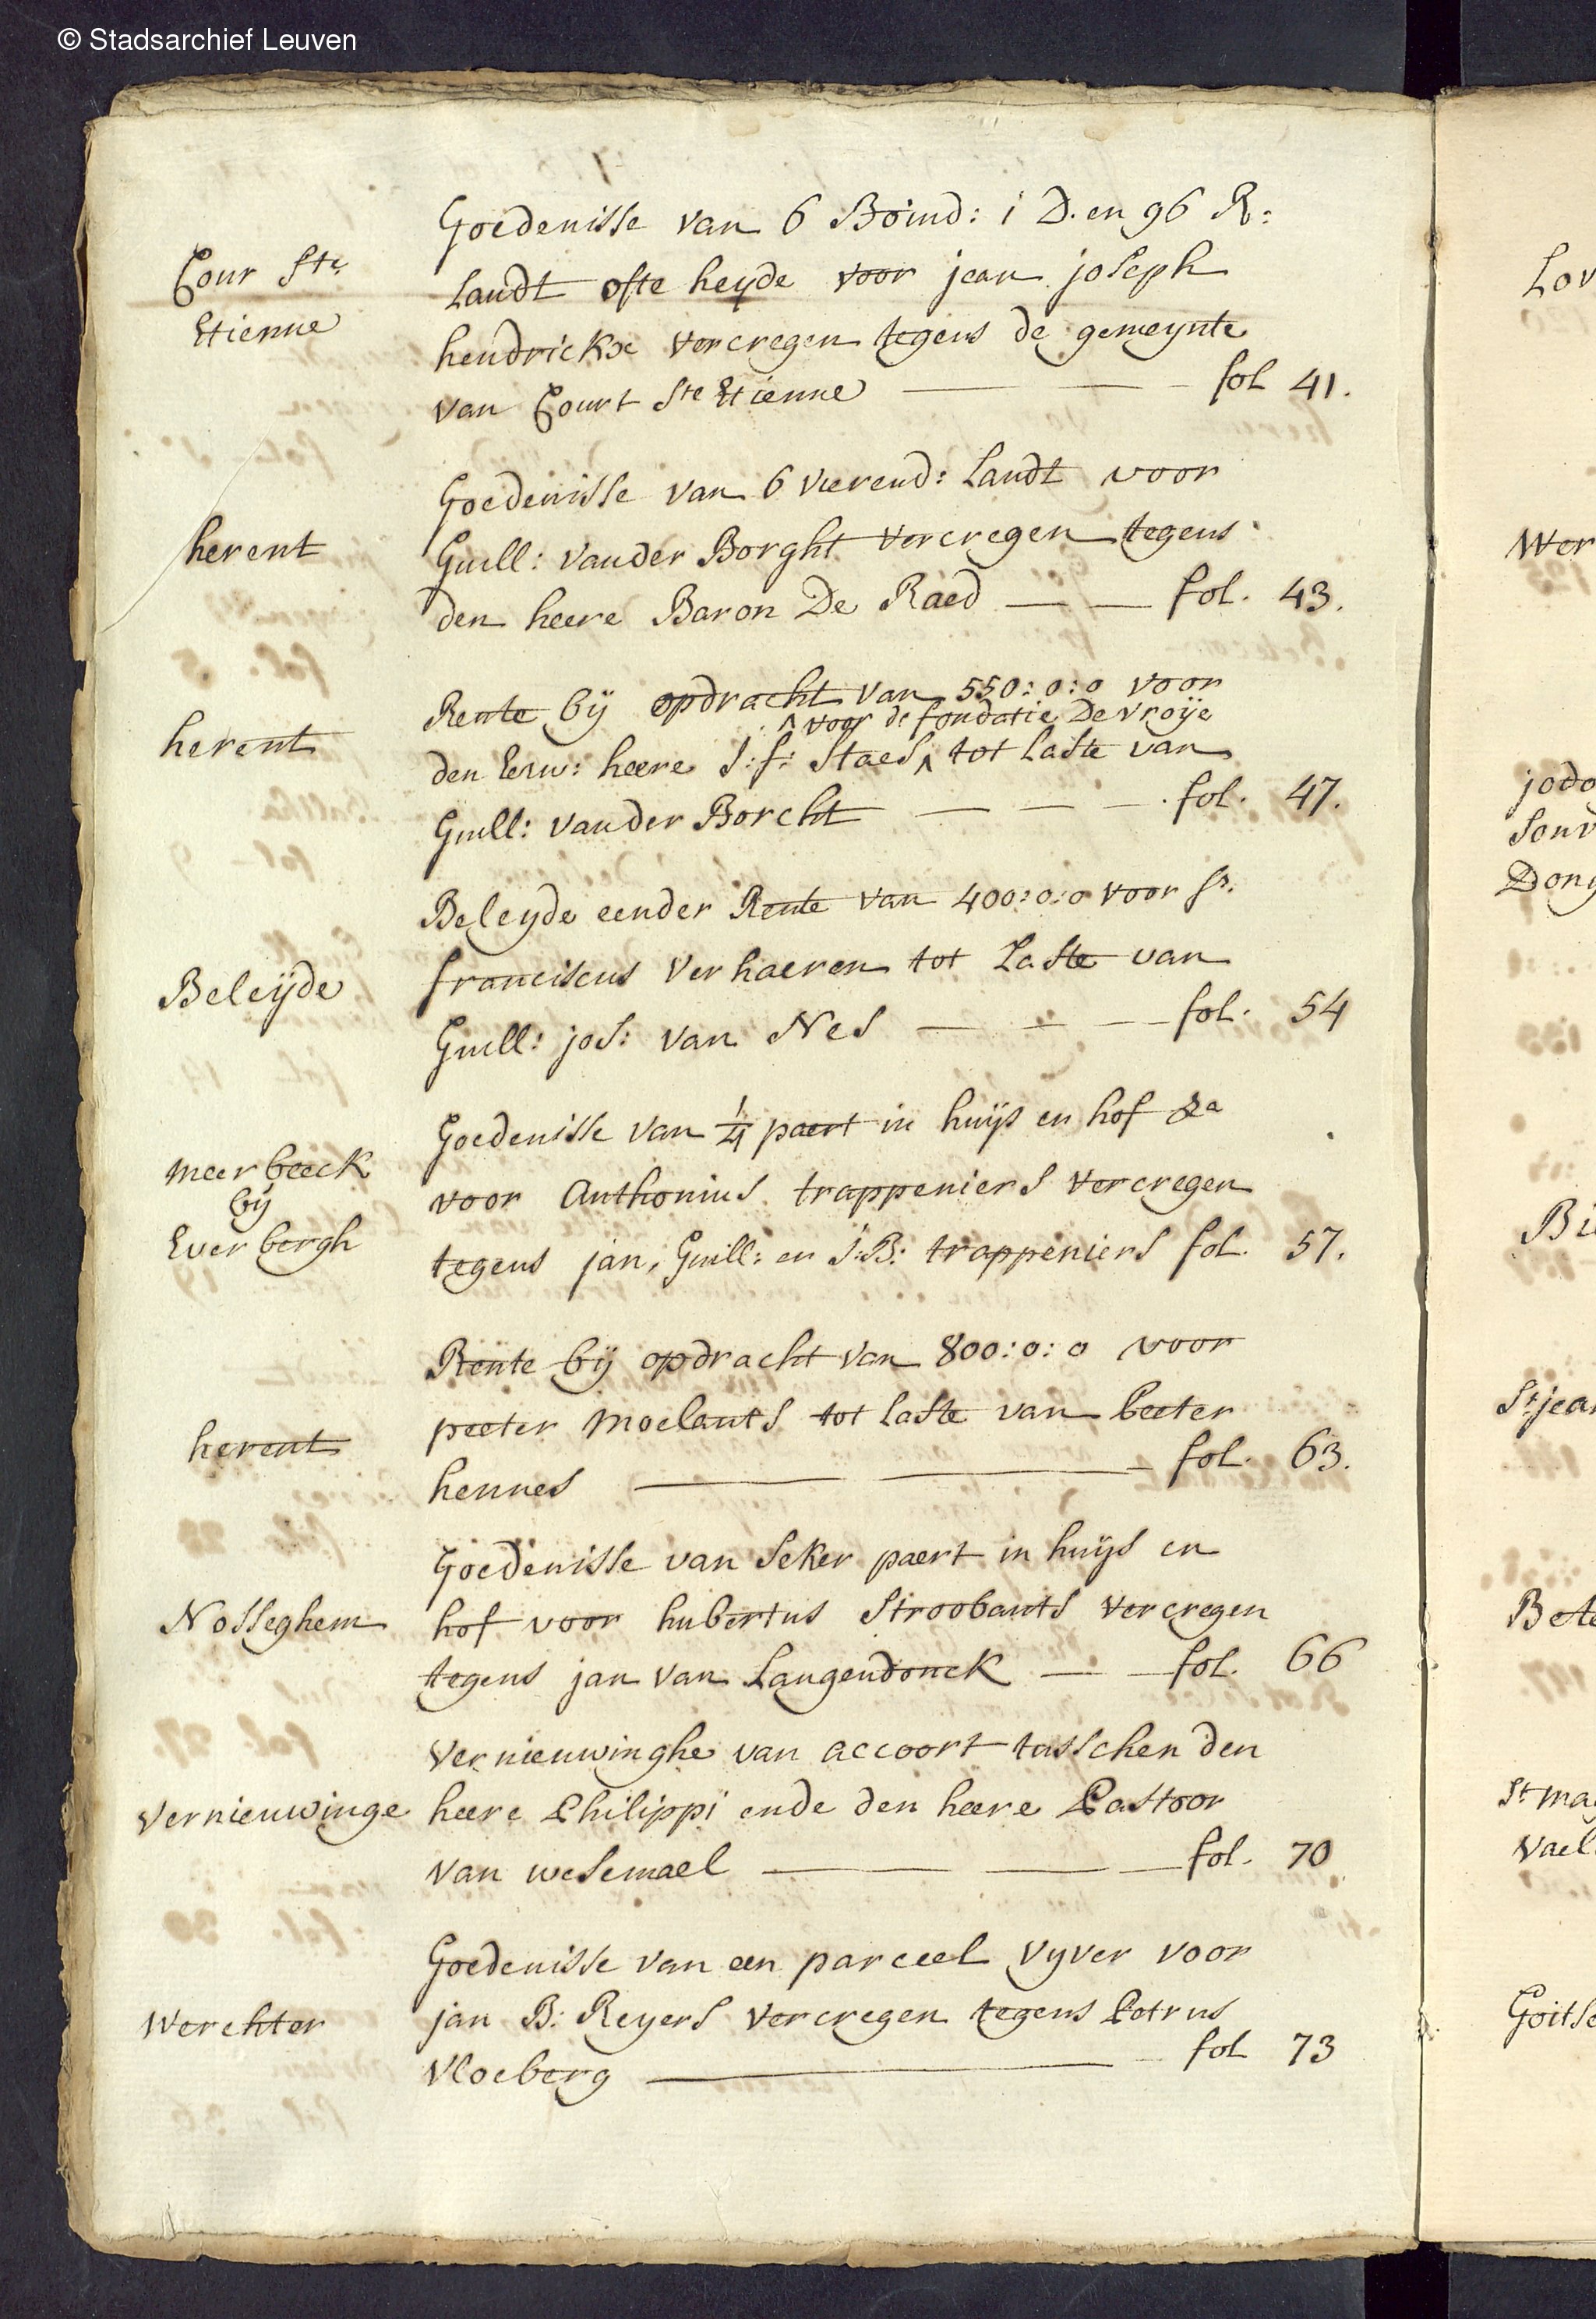 © Stadsarchief Leuven
Goedenisse van 6 Boind: 1 D. en 96 R:
Cour Ste
Landt ofte heyde voor jean joseph
Etienne
hendrickx vercregen tegens de gemeynte
van Court Ste Etienne fol 41.
Goedenisse van 6 vierend: Landt voor
herent
Guill: vander Borght vercregen tegens
den heere Baron De Raed fol. 43.
Rente bij opdracht van 550:0:0 voor
herent
^ voor de fondatie De vroije
den Eerw: heere J:f: Staes ^ tot Laste van
Guill: vander Borcht fol. 47.
Beleyde eender Rente van 400:0:0 voor Sr.
Beleijde
franciscus Verhaeren tot Laste van
Guill: jos: van Nes fol. 54
Goedenisse van 1/4 paert in huijs en hof &a
Meerbeeck
voor Anthonius trappeniers vercregen
bij
Everbergh
tegens jan, Guill: en J:B: trappeniers fol. 57.
Rente bij opdracht van 800:0:0 voor
peeter Moelants tot Laste van Peeter
herent
hennes fol. 63.
Goedenisse van seker paert in huijs en
Nosseghem
hof voor hubertus Stroobants vercregen
tegens jan van Langendonck fol. 66
Vernieuwinghe van accoort tusschen den
Vernieuwinge
heere Philippi ende den heere Pastoor
van weSemael fol. 70
Goedenisse van een parceel vyver voor
Werchter
jan B: Reyers vercregen tegens Petrus
Vloeberg fol 73
Lov
Wer
jodo
Souv
Dong
Bi
St jean
Bete
St ma
Vael
Goitse